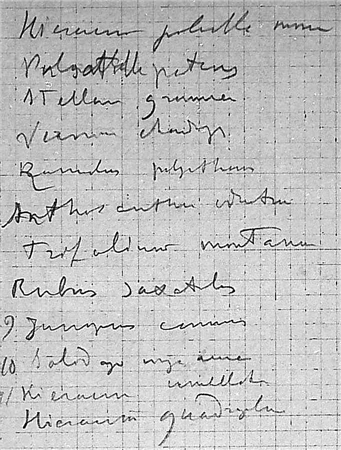 Hieracium pilosella
Pulsatilla patens
Stellari graminea
Veronica chamaedrys
Ranunculus polyanthemus
Anthoxanthum odoratum
Trifolium montanum
Rubus saxatilis
9. Juniperus communis
10. Solidago virga aurea
11. Hieracium umbellat
Hieracium